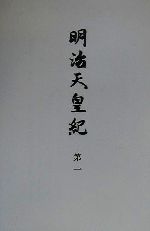 明治天皇紀
第一